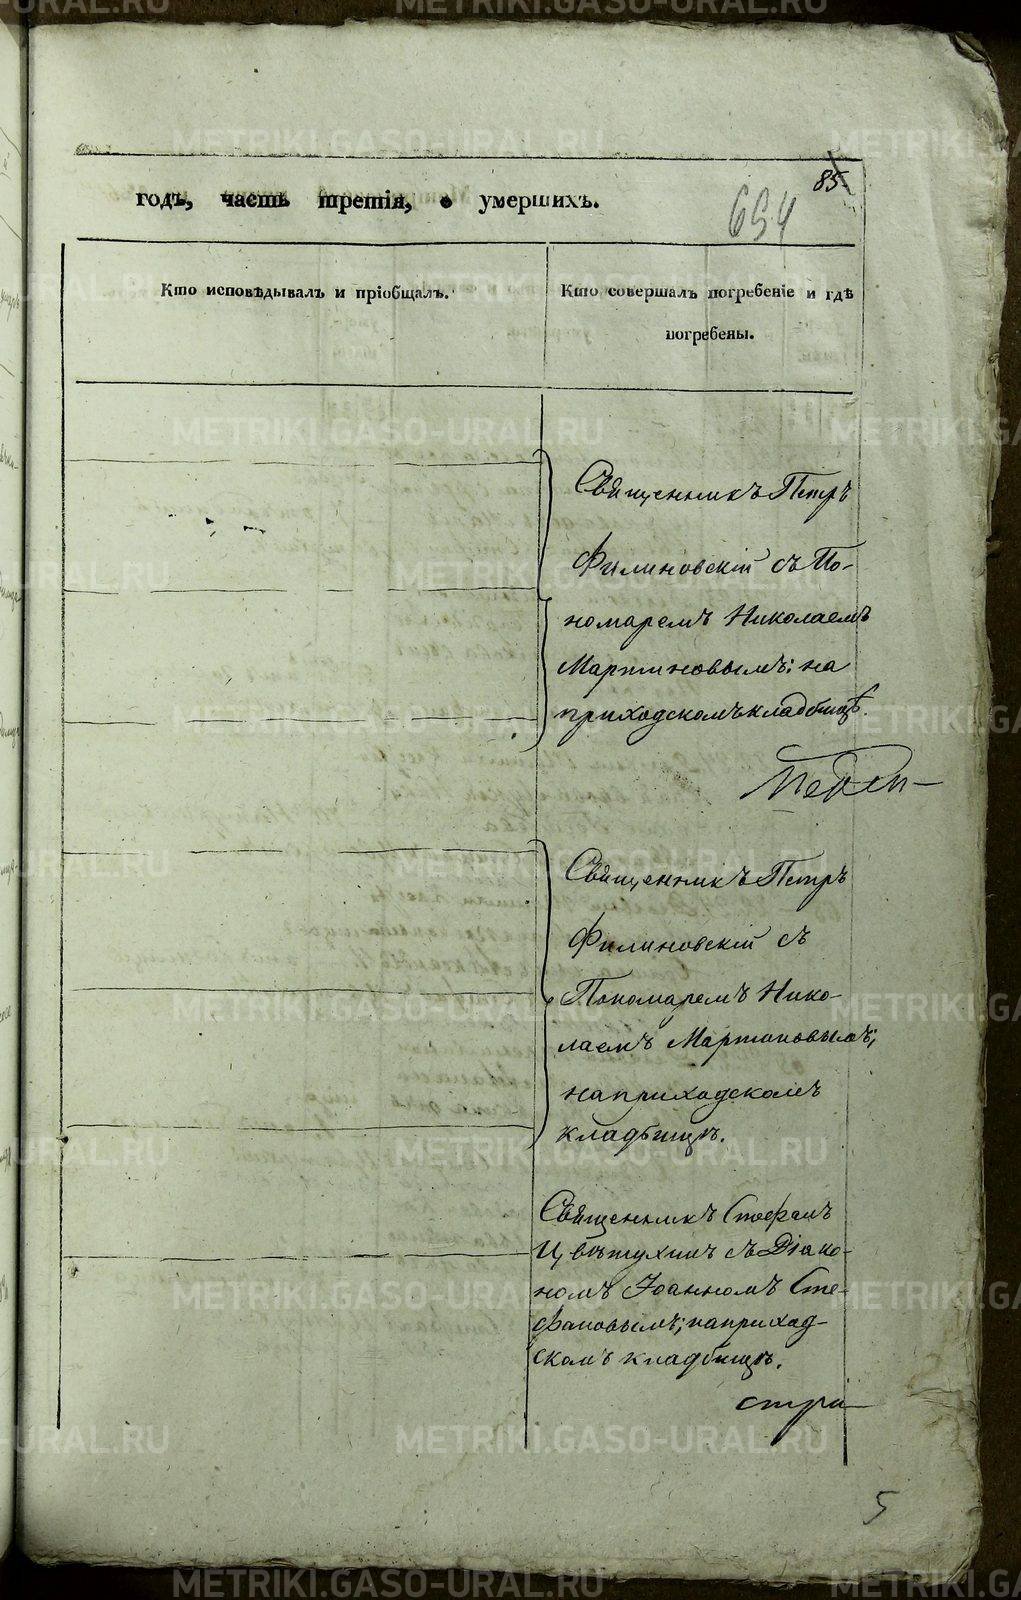 METRIKI.GASO-URAL.RU
85
годъ, часть третія, о умершихъ.
694
Кто исповѣдывалъ и пріобщалъ.
Кто совершалъ погребеніе и гдѣ
погребены.
Священникъ Петръ
Филиновскій съ По-
номаремъ Николаемъ
Мартиновымъ; на
приходскомъ кладбищѣ.
Священникъ Петръ
Филиновскій съ
Пономаремъ Нико-
лаемъ Мартиновымъ;
на приходскомъ
кладбищѣ.
Священникъ Стефанъ
Цвѣтухинъ съ Діако-
номъ Іоанномъ Сте-
фановымъ; на приход-
скомъ кладбищѣ.
стри
5